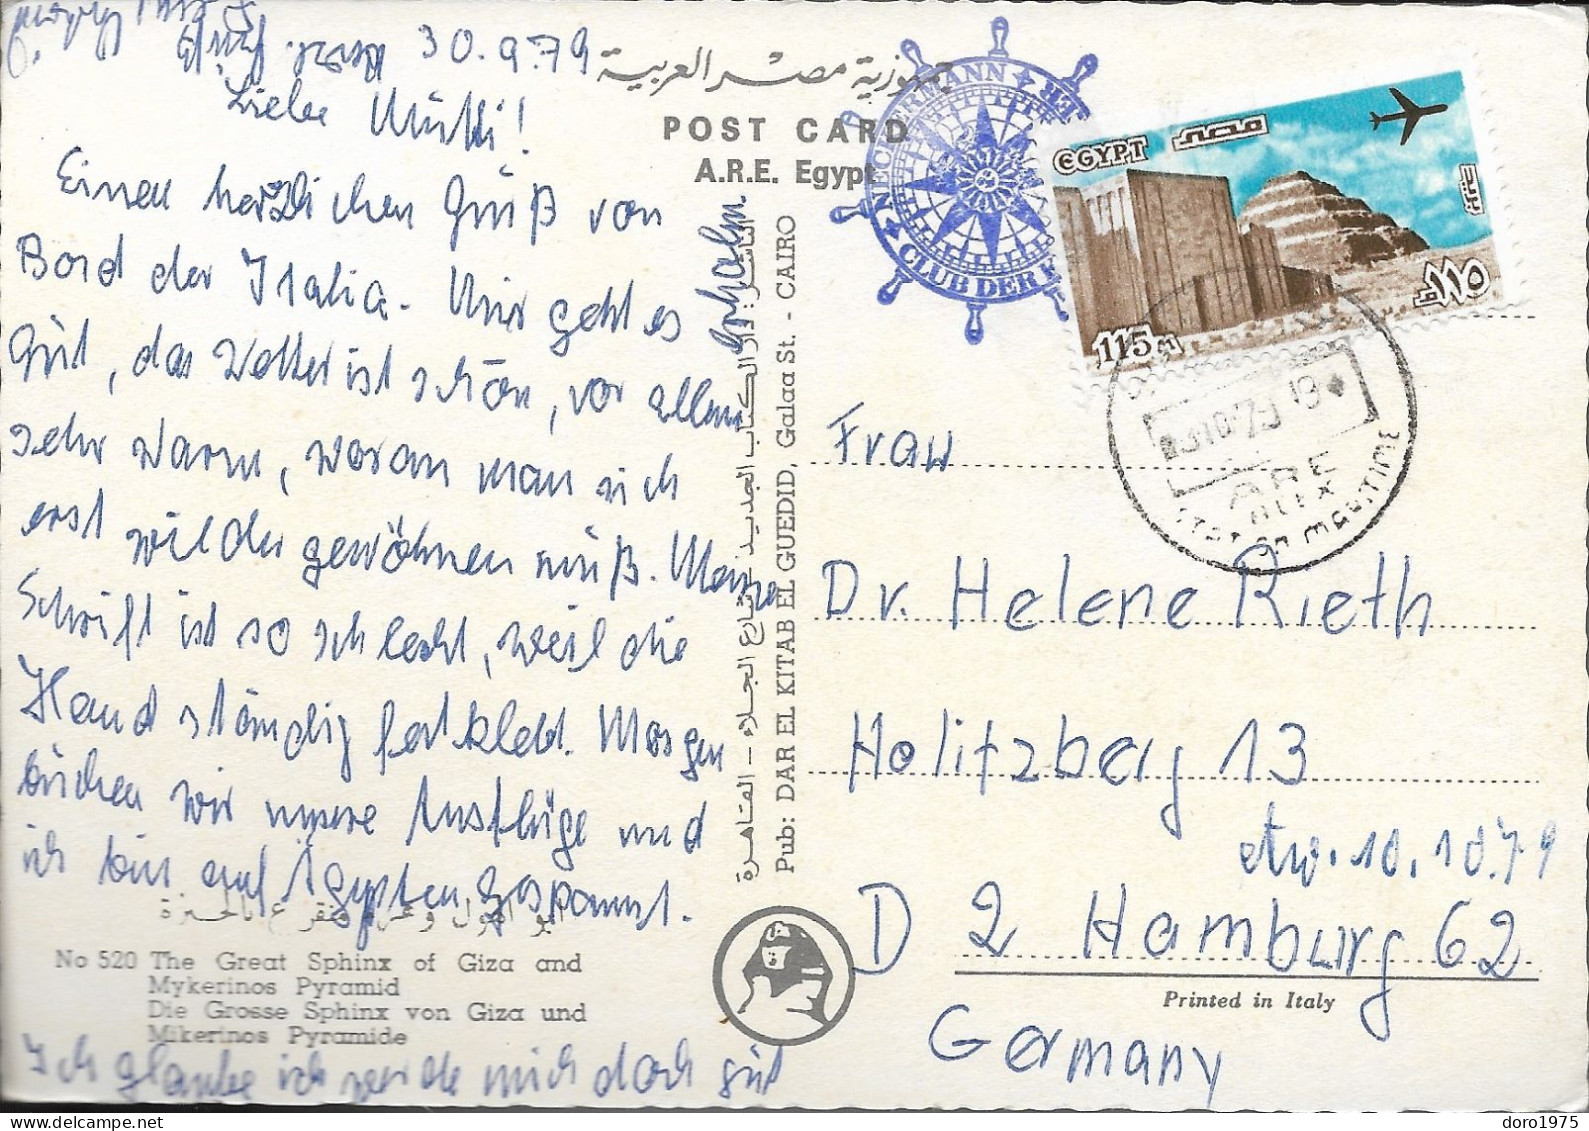 30.9.79
Liebe Mutti!
Einen herzlichen Gruß von
Bord der Italia. Mir geht es
gut, das Wetter ist schön, vor allem
sehr warm, woran man sich
erst wieder gewöhnen muß. Meine
Schrift ist so schlecht, weil die
Hand ständig festklebt. Morgen
buchen wir unsere Ausflüge und
ich bin auf Ägypten gespannt.
Ich glaube ich werde mich doch gut
erholen.
No 520 The Great Sphinx of Giza and
Mykerinos Pyramid
Die Grosse Sphinx von Giza und
Mikerinos Pyramide
جمهورية مصر العربية
POST CARD
A.R.E. Egypt
الناشر: دار الكتاب الجديد - شارع الجلاء - القاهرة
Pub: DAR EL KITAB EL GUEDID, Galaa St. - CAIRO
NECKERMANN
CLUB DER
EGYPT مصر
115 m ١١٥
ARE
ALEX
Frau
Dr. Helene Rieth
Holitzberg 13
etw. 10.10.79
D 2 Hamburg 62
Printed in Italy
Germany
doro1975